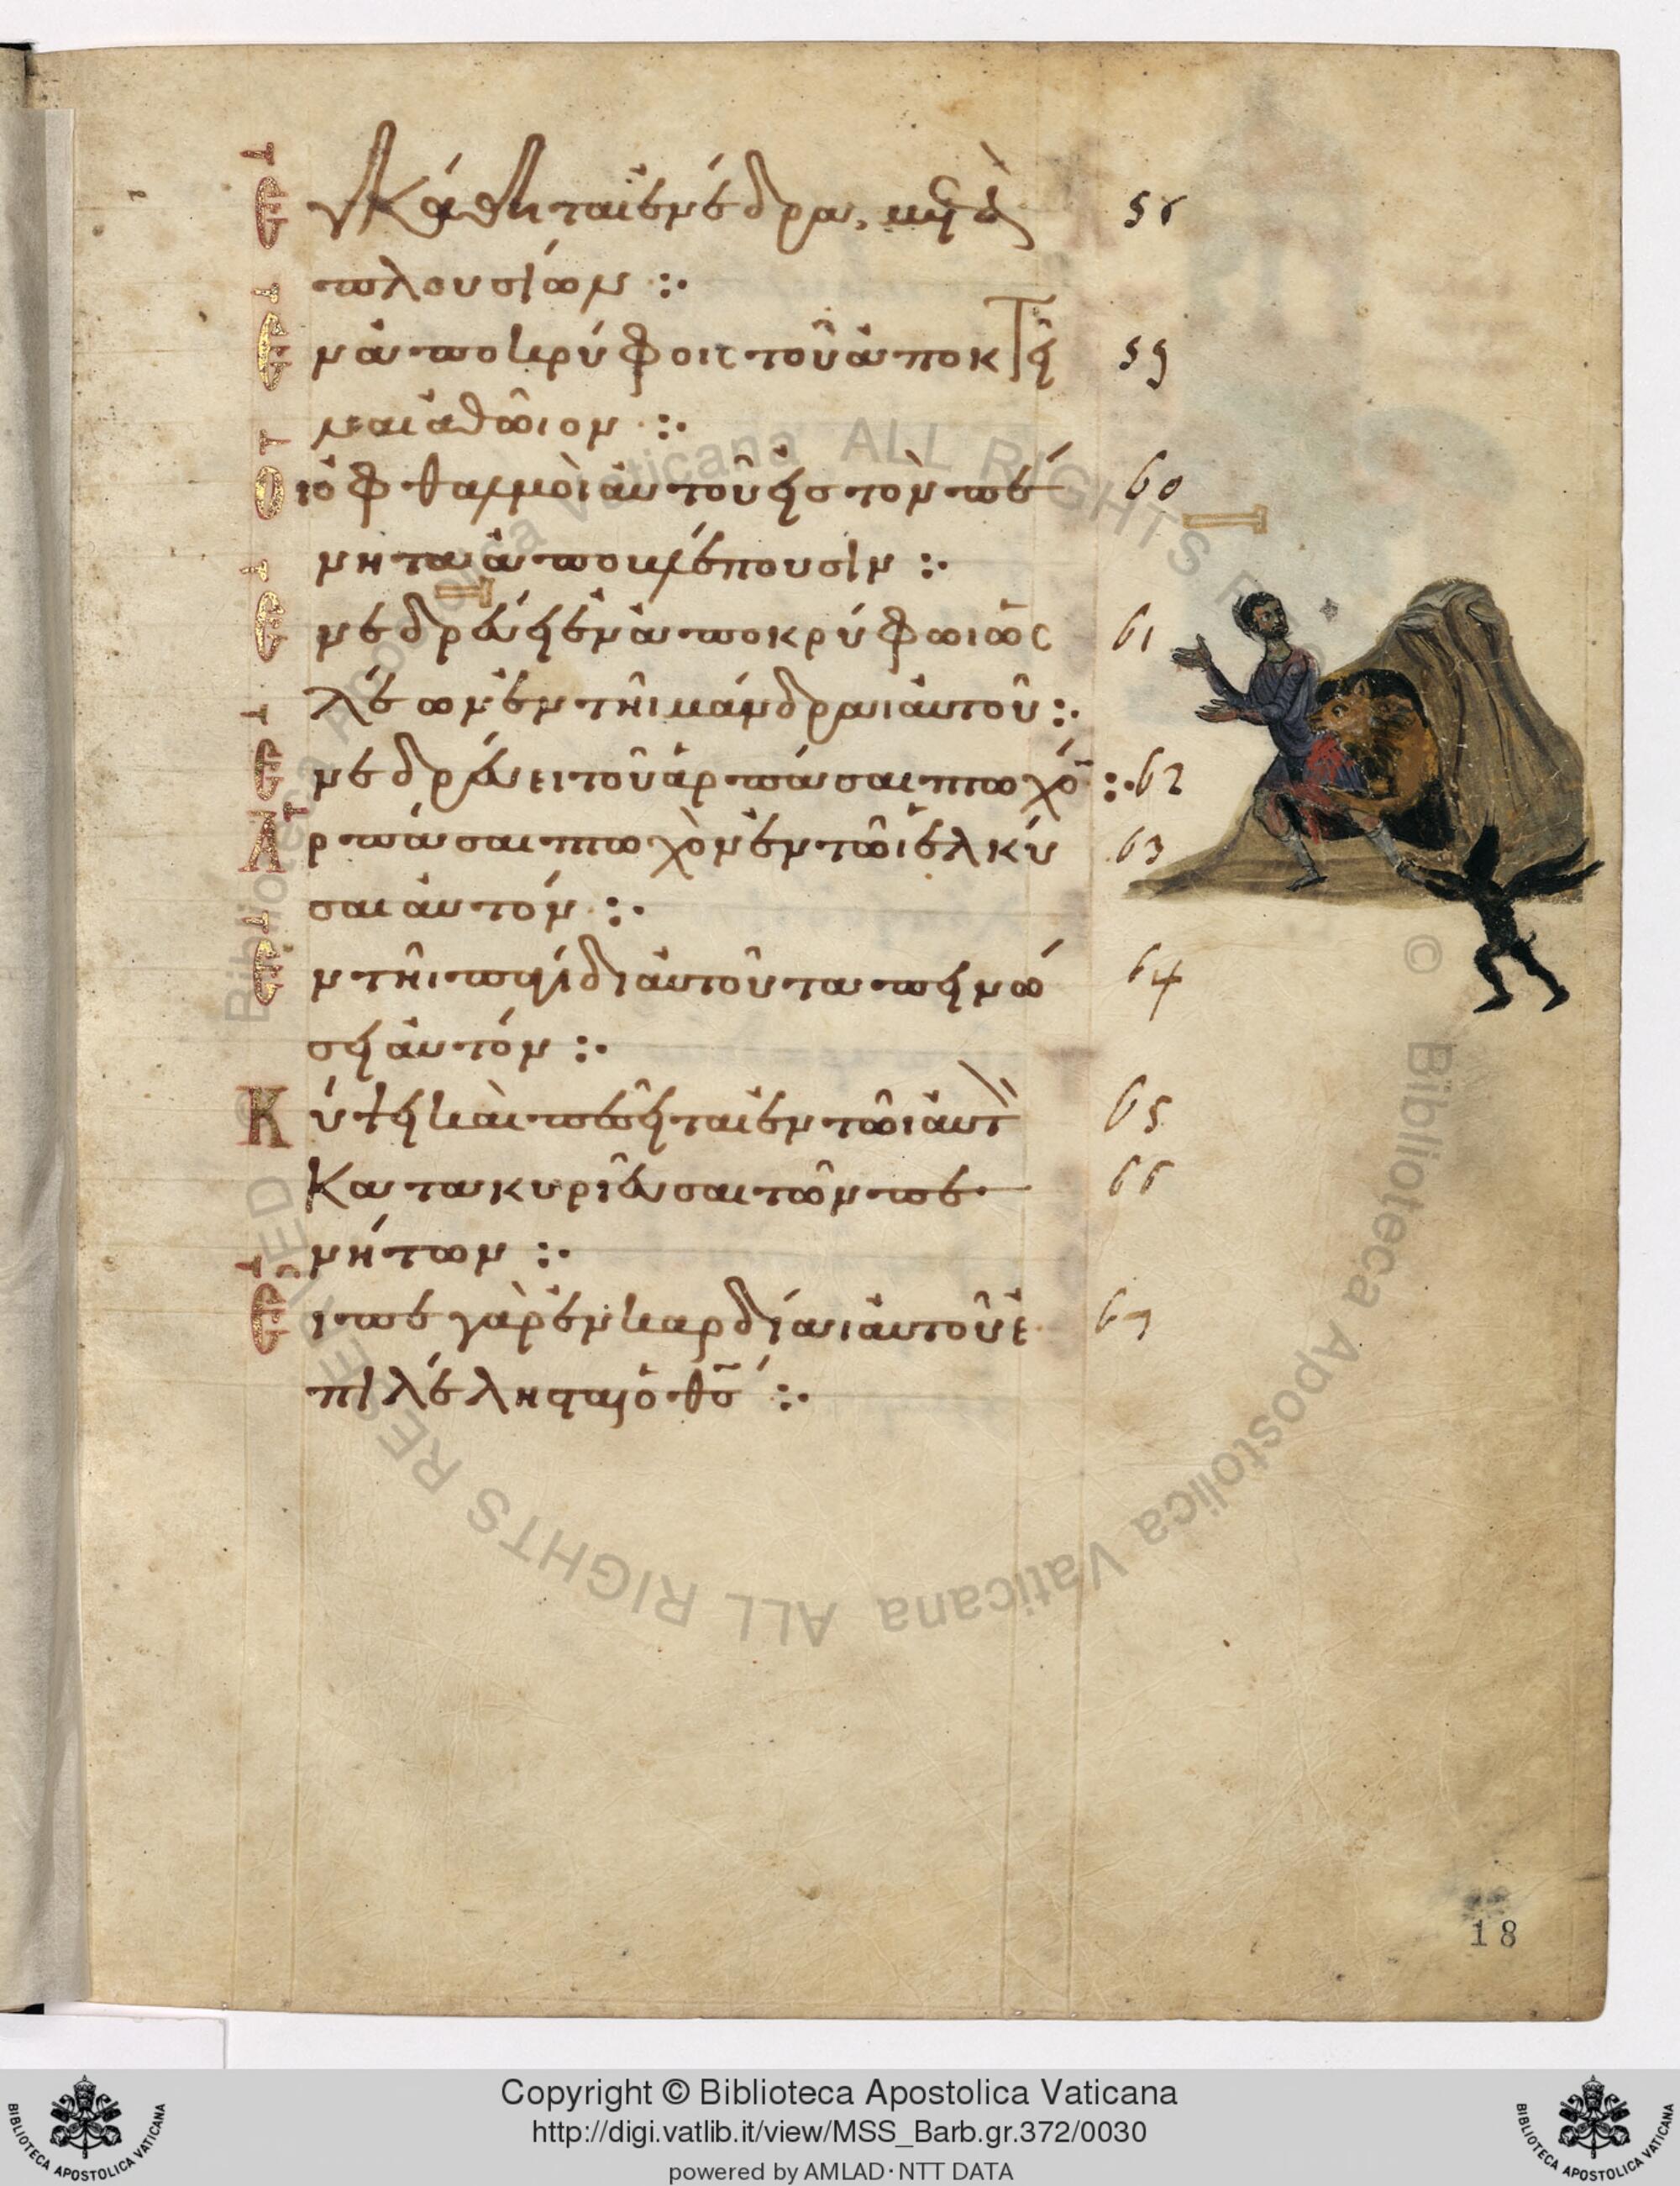 Ἐγκάθηται ἐνέδρα, μετὰ 58
πλουσίων :·
Ἐν ἀποκρύφοις τοῦ ἀποκτεῖ 59
ναι ἀθῶιον :·
Οἱ ὀφθαλμοὶ αὐτοῦ εἰς τὸν πέ 60
νητα ἀποβλέπουσιν :·
Ἐνεδρεύει ἐν ἀποκρύφωι ὡς 61
λέων ἐν τῆι μάνδραι αὐτοῦ :·
Ἐνεδρεύει τοῦ ἁρπάσαι πτωχό̅ :· 62
Ἁρπάσαι πτωχὸν ἐν τῶι ἑλκύ 63
σαι αὐτόν :·
Ἐν τῆι παγίδι αὐτοῦ ταπεινώ 64
σει αὐτόν :·
Κύψει καὶ πεσεῖται ἐν τῶι αὐτ 65
Κατακυριεῦσαι τῶν πε 66
νήτων :·
Εἶπε γὰρ ἐν καρδίαι αὐτοῦ ἐ 67
πιλέλησται ὁ θ̅σ̅ :·
18
© Biblioteca Apostolica Vaticana ALL RIGHTS RESERVED
© Biblioteca Apostolica Vaticana ALL RIGHTS RESERVED
Copyright © Biblioteca Apostolica Vaticana
http://digi.vatlib.it/view/MSS_Barb.gr.372/0030
powered by AMLAD·NTT DATA
BIBLIOTECA APOSTOLICA VATICANA
BIBLIOTECA APOSTOLICA VATICANA